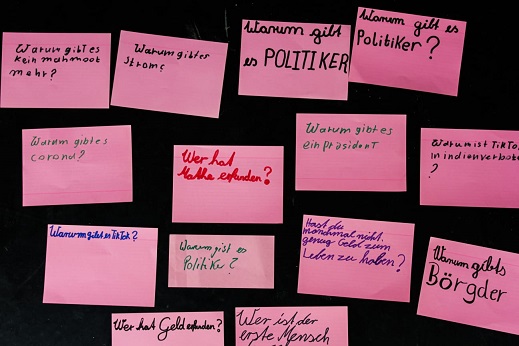 Warum gibt es
kein mahmoot
mehr?
Warum gibt es
Strom?
Warum gibt
es POLITIKER
Warum gibt es
Politiker?
Warum gibt es
corona?
Wer hat
Mathe erfunden?
Warum gibt es
ein Präsident
Warum ist TikTo
in indien verbote
?
Warum gibt es TikTok?
Warum gist es
Politiker?
Hast du
manchmal nicht
genug Geld zum
Leben zu haben?
Warum gibts
Börgder
Wer hat Geld erfunden?
Wer ist der
erste Mensch